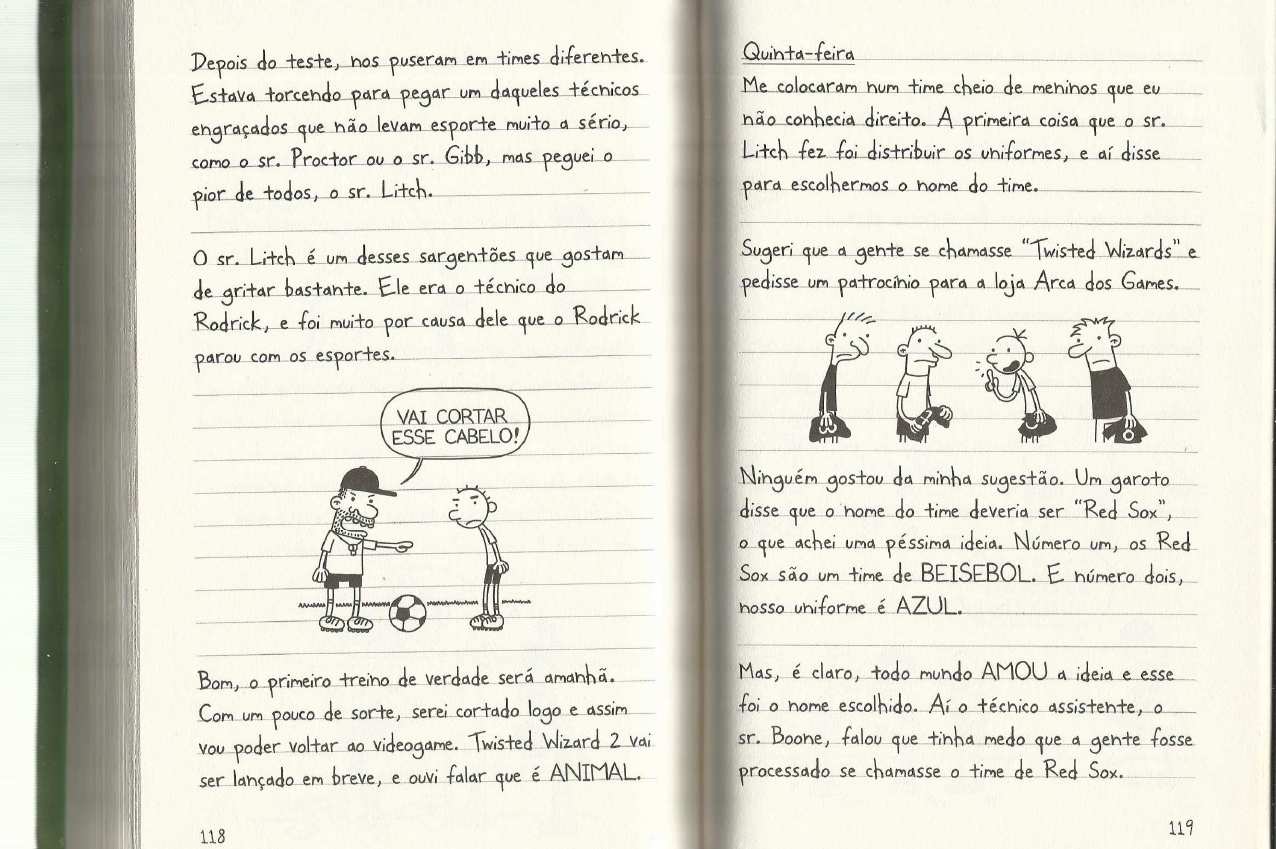 Depois do teste, nos puseram em times diferentes.
Estava torcendo para pegar um daqueles técnicos
engraçados que não levam esporte muito a sério,
como o sr. Proctor ou o sr. Gibb, mas peguei o
pior de todos, o sr. Litch.
O sr. Litch é um desses sargentões que gostam
de gritar bastante. Ele era o técnico do
Rodrick, e foi muito por causa dele que o Rodrick
parou com os esportes.
VAI CORTAR
ESSE CABELO!
Bom, o primeiro treino de verdade será amanhã.
Com um pouco de sorte, serei cortado logo e assim
vou poder voltar ao videogame. Twisted Wizard 2 vai
ser lançado em breve, e ouvi falar que é ANIMAL.
118
Quinta-feira
Me colocaram num time cheio de meninos que eu
não conhecia direito. A primeira coisa que o sr.
Litch fez foi distribuir os uniformes, e aí disse
para escolhermos o nome do time.
Sugeri que a gente se chamasse "Twisted Wizards" e
pedisse um patrocínio para a loja Arca dos Games.
Ninguém gostou da minha sugestão. Um garoto
disse que o nome do time deveria ser "Red Sox",
o que achei uma péssima ideia. Número um, os Red
Sox são um time de BEISEBOL. E número dois,
nosso uniforme é AZUL.
Mas, é claro, todo mundo AMOU a ideia e esse
foi o nome escolhido. Aí o técnico assistente, o
sr. Boone, falou que tinha medo que a gente fosse
processado se chamasse o time de Red Sox.
119